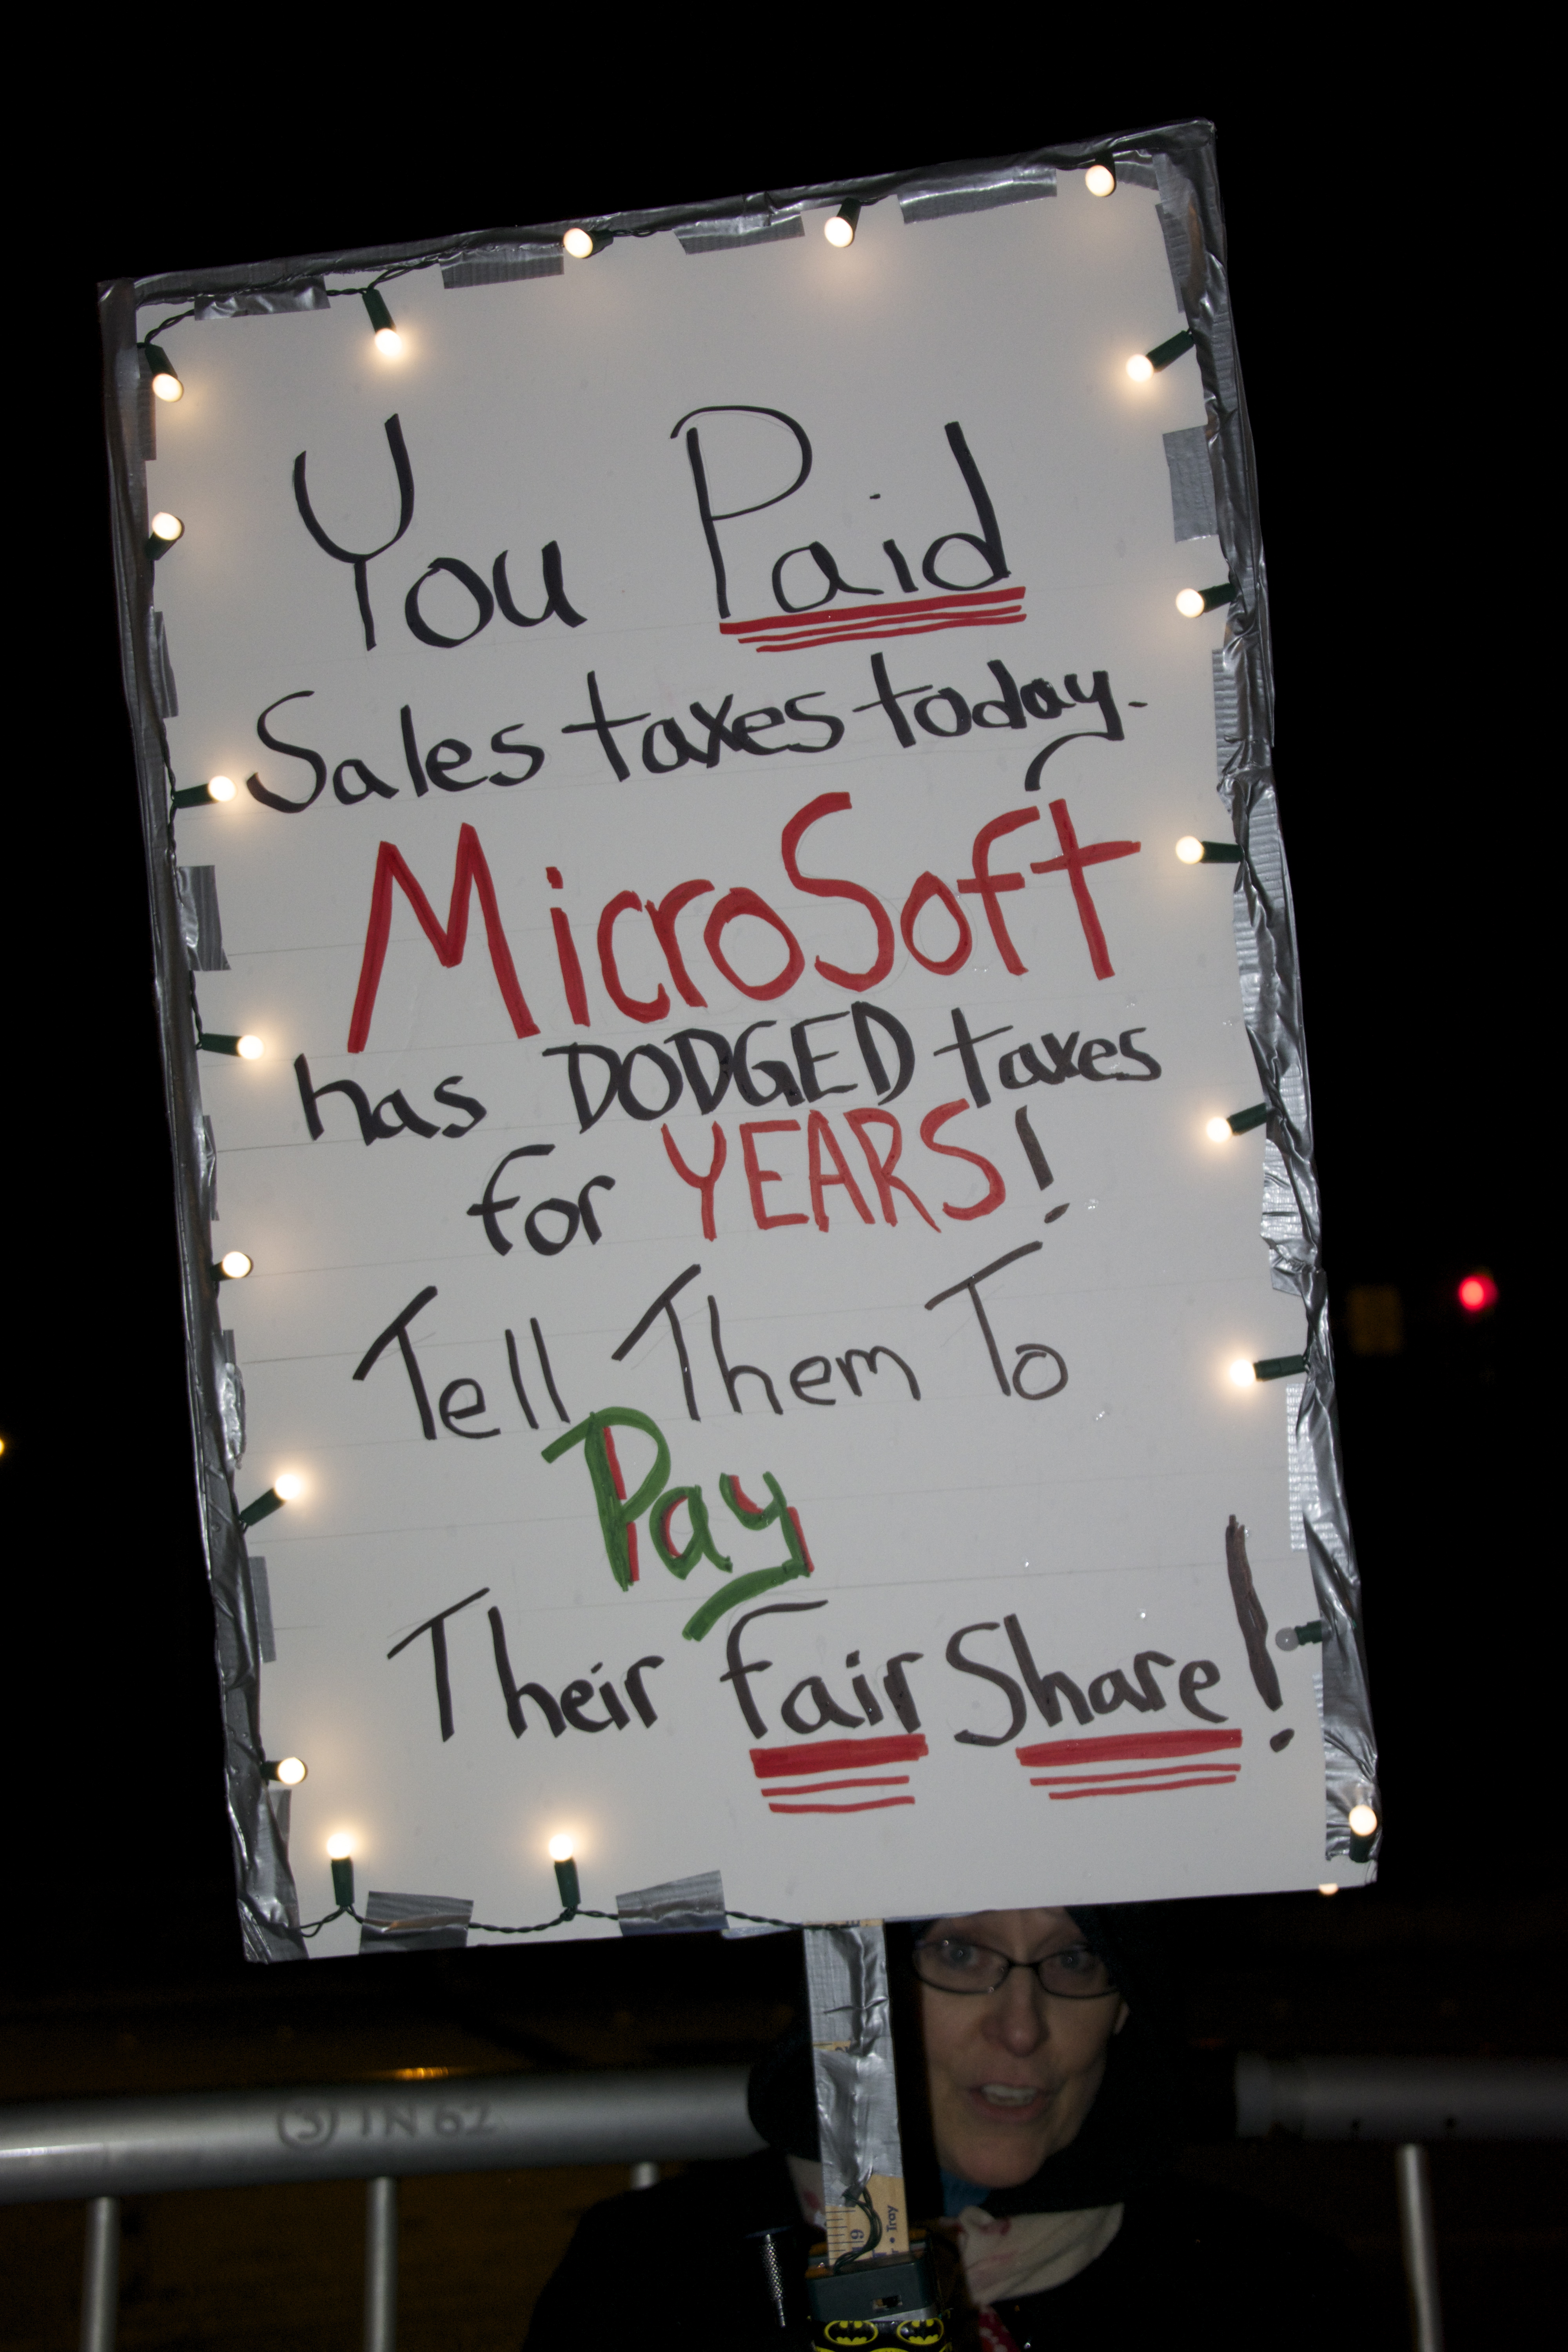 You Paid
Sales taxes today.
MicroSoft
has DODGED taxes
for YEARS!
Tell Them To
Pay
Their Fair Share!
S IN 62
19
Tray